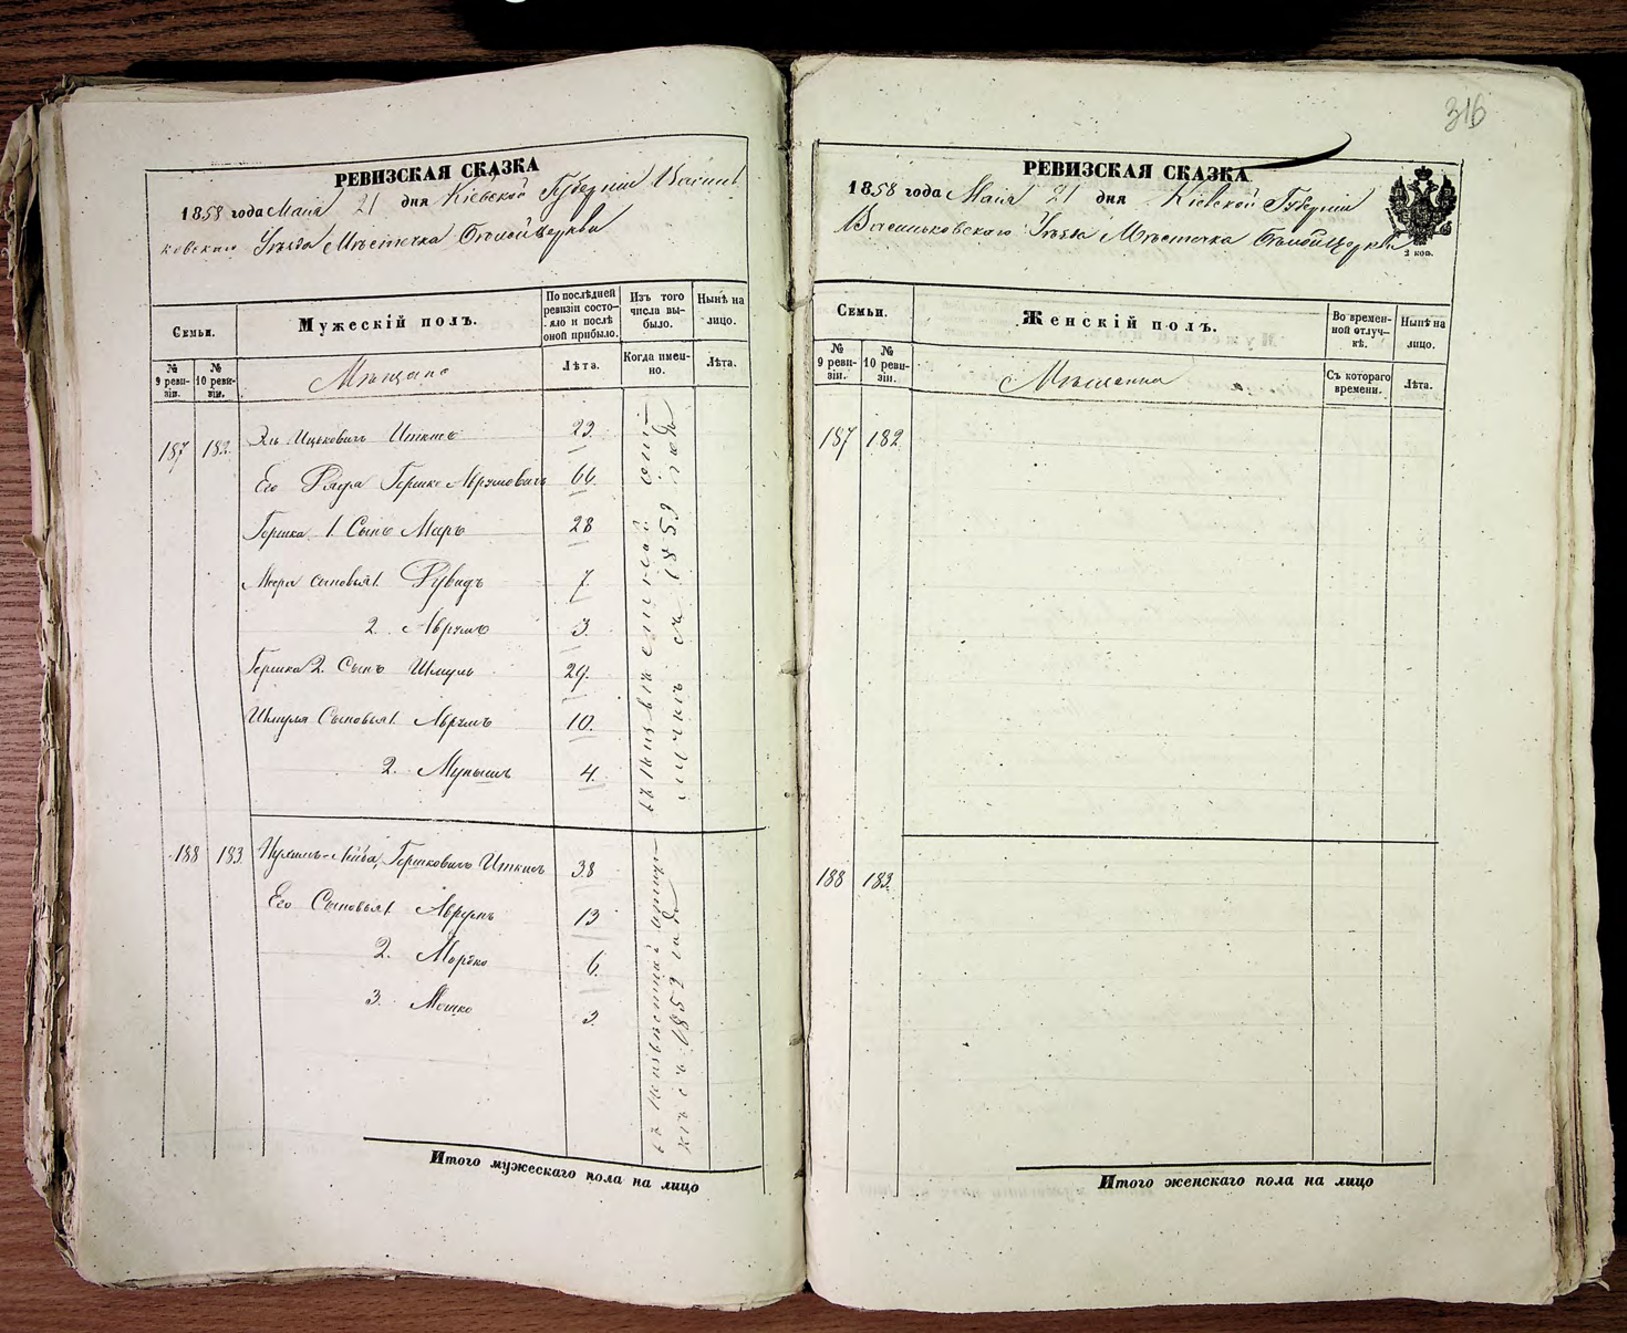 316
РЕВИЗСКАЯ СКАЗКА
1858 года Маія 21 дня Кіевской Губерніи Василь
ковскаго Уѣзда Мѣстечка Бѣлойцеркви
Семьи.
Мужескій полъ.
По послѣдней ревизіи состо-
яло и послѣ
оной прибыло.
Изъ того
числа вы-
было.
Нынѣ на
лицо.
№
9 реви-
зіи.
№
10 реви-
зіи.
Мѣщане
Лѣта.
Когда имен-
но.
Лѣта.
187 182 Ицковичъ Иткисъ 23
Его Дядя Гершко Аврумовичъ 66.
Гершка 1. Сынъ Меръ 28
Мера сыновья 1. Рувидъ 7.
2. Аврумъ 3.
Гершка 2. Сынъ Шмуль 29.
Шмуля Сыновья 1. Аврумъ 10.
2. 4.
въ неизвѣстной
отлучкѣ съ 185 года
188 183 Лейба Гершковичъ Иткисъ 38
Его Сыновья 1. Аврумъ 13
2. Мордко 6.
3. Мошко 3.
въ неизвѣстной отлуч-
кѣ съ 185 года
Итого мужескаго пола на лицо
РЕВИЗСКАЯ СКАЗКА
1858 года Маія 21 дня Кіевской Губерніи
Васильковскаго Уѣзда Мѣстечка Бѣлойцеркви
2 коп.
Семьи.
Женскій полъ.
Во времен-
ной отлуч-
кѣ.
Нынѣ на
лицо.
№
9 реви-
зіи.
№
10 реви-
зіи.
Съ котораго
времени.
Лѣта.
187 182
188 183
Итого женскаго пола на лицо